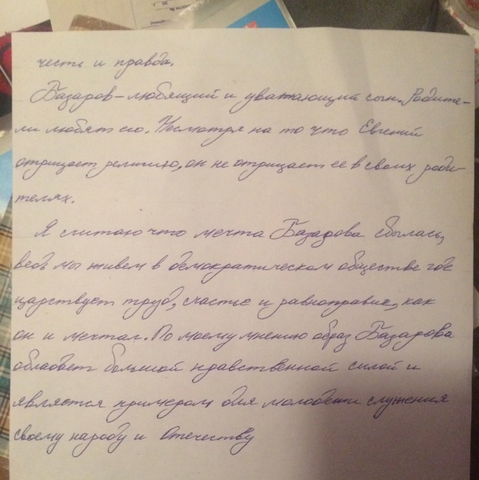 честь и правда.
Базаров-любящий и уважающий сын. Родите-
ли любят его. Несмотря на то что Евгений
отрицает религию, он не отрицает ее в своих роди-
телях.
Я считаю что мечта Базарова сбылась,
ведь мы живем в демократическом обществе где
царствует труд, счастье и равноправие, как
он и мечтал. По моему мнению образ Базарова
обладает большой нравственной силой и
является примером для молодежи служения
своему народу и Отечеству